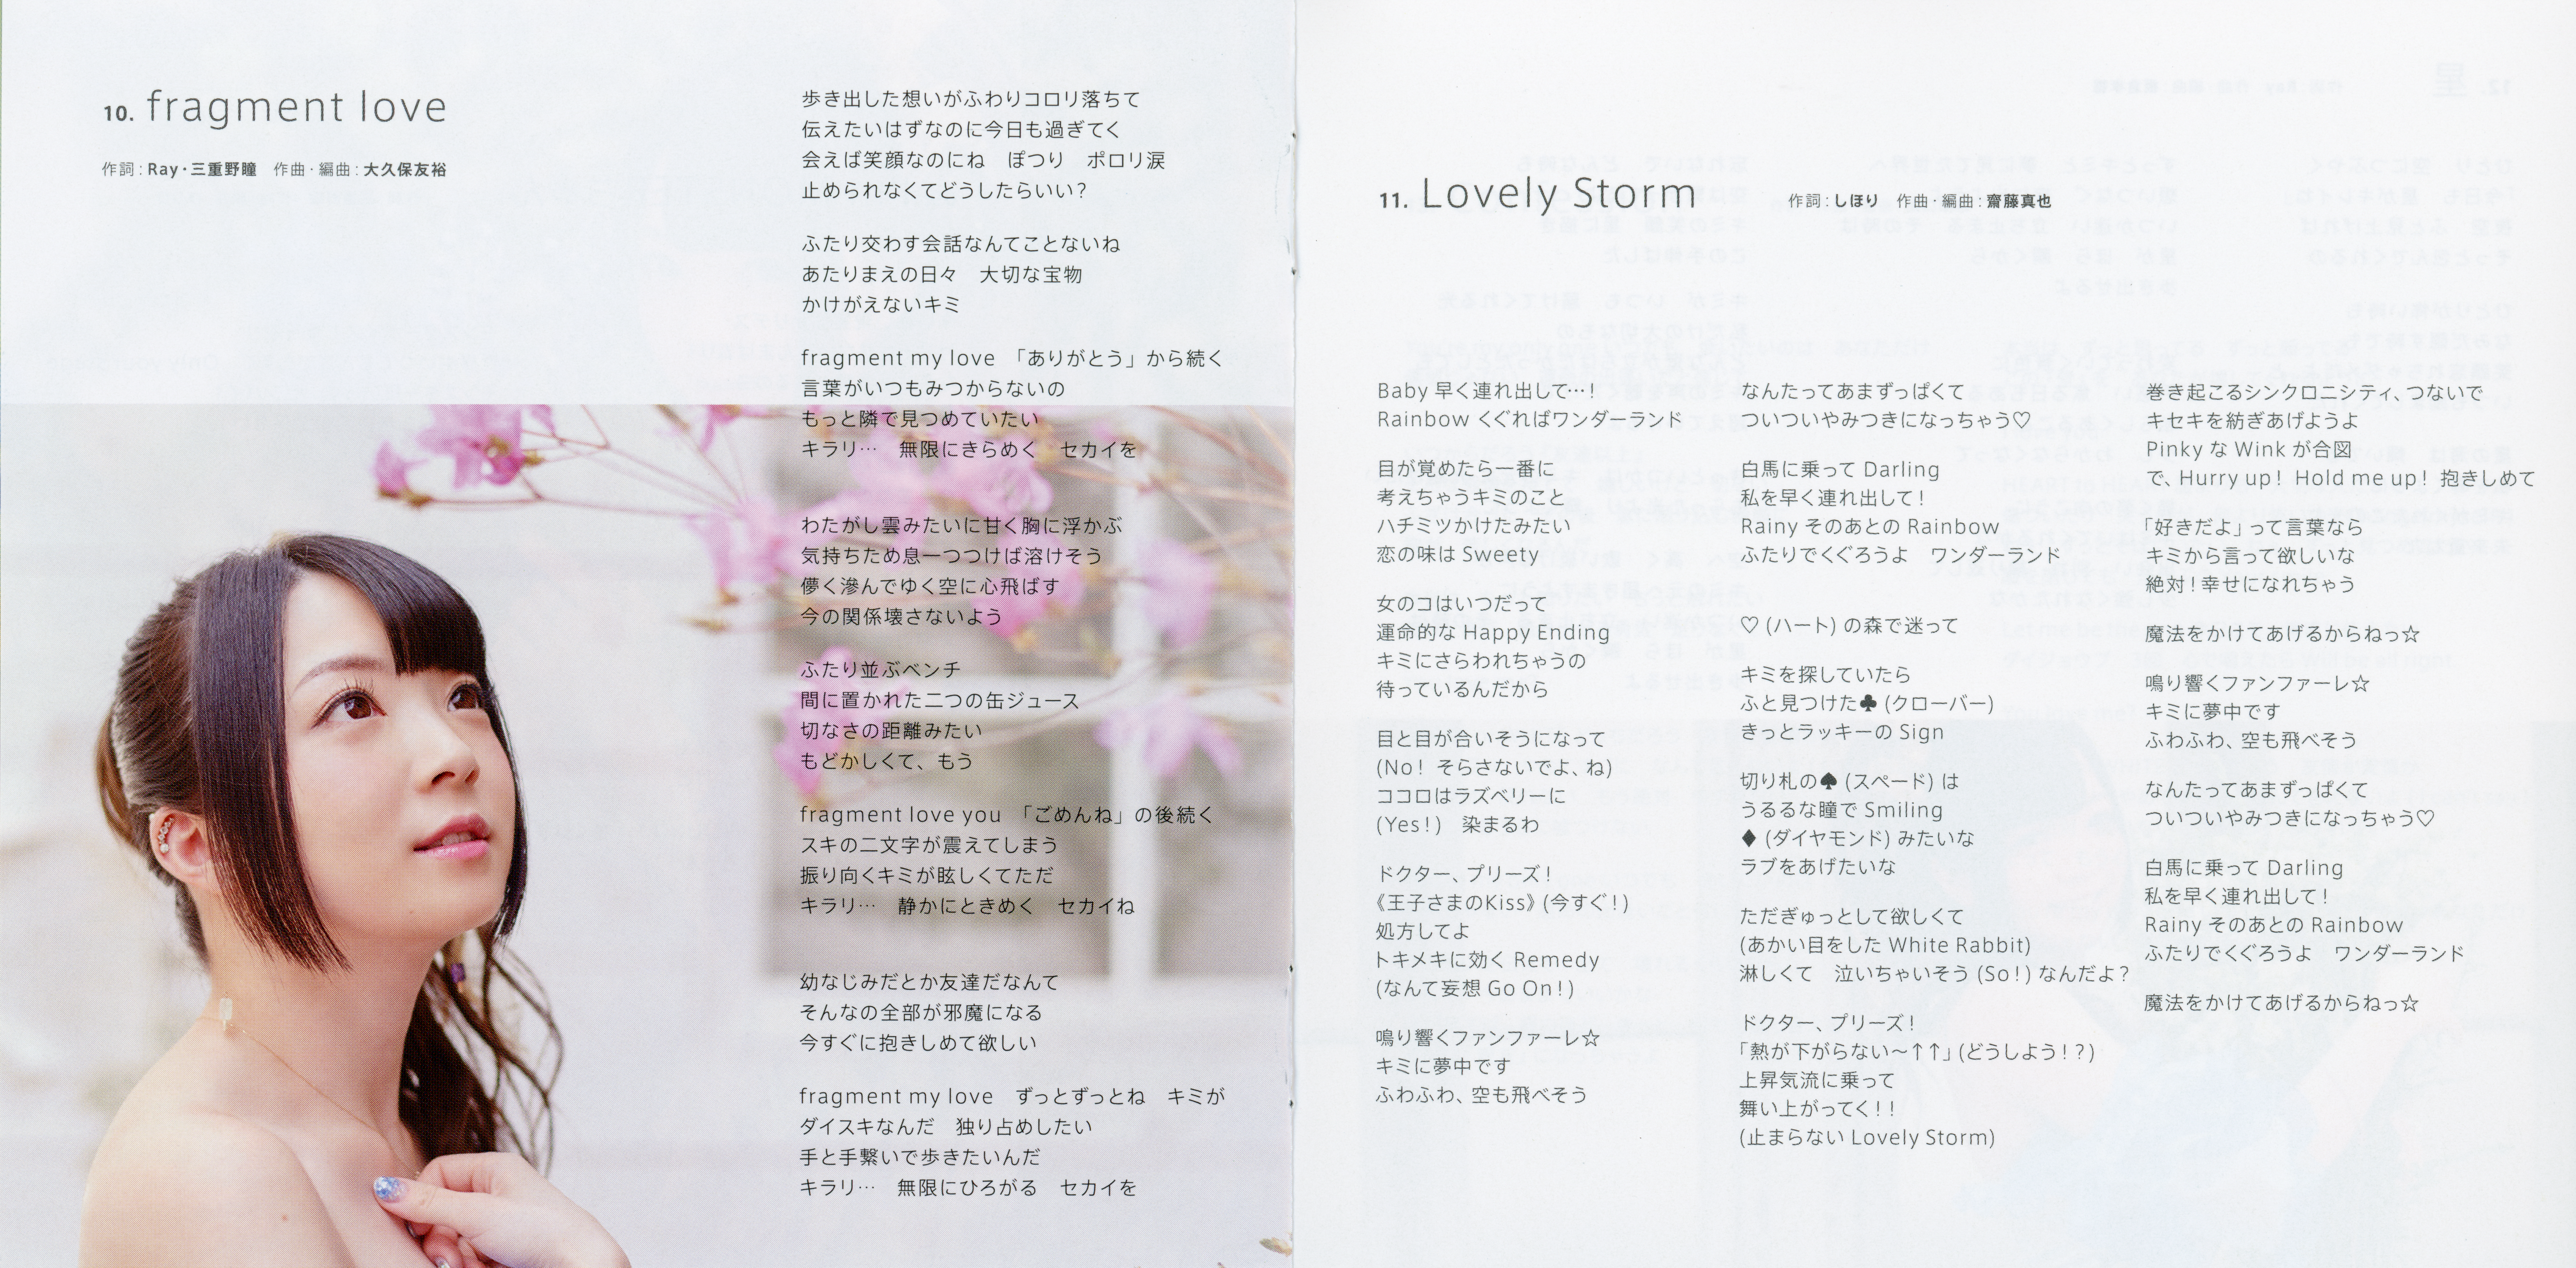 10. fragment love
作詞：Ray・三重野瞳　作曲・編曲：大久保友裕
歩き出した想いがふわりコロリ落ちて
伝えたいはずなのに今日も過ぎてく
会えば笑顔なのにね　ぽつり　ポロリ涙
止められなくてどうしたらいい？
ふたり交わす会話なんてことないね
あたりまえの日々　大切な宝物
かけがえないキミ
fragment my love　「ありがとう」から続く
言葉がいつもみつからないの
もっと隣で見つめていたい
キラリ…　無限にきらめく　セカイを
わたがし雲みたいに甘く胸に浮かぶ
気持ちため息一つつけば溶けそう
儚く滲んでゆく空に心飛ばす
今の関係壊さないよう
ふたり並ぶベンチ
間に置かれた二つの缶ジュース
切なさの距離みたい
もどかしくて、もう
fragment love you　「ごめんね」の後続く
スキの二文字が震えてしまう
振り向くキミが眩しくてただ
キラリ…　静かにときめく　セカイね
幼なじみだとか友達だなんて
そんなの全部が邪魔になる
今すぐに抱きしめて欲しい
fragment my love　ずっとずっとね　キミが
ダイスキなんだ　独り占めしたい
手と手繋いで歩きたいんだ
キラリ…　無限にひろがる　セカイを
11. Lovely Storm
作詞：しほり　作曲・編曲：齋藤真也
Baby 早く連れ出して…！
Rainbow くぐればワンダーランド
目が覚めたら一番に
考えちゃうキミのこと
ハチミツかけたみたい
恋の味は Sweety
女のコはいつだって
運命的な Happy Ending
キミにさらわれちゃうの
待っているんだから
目と目が合いそうになって
(No！ そらさないでよ、ね)
ココロはラズベリーに
(Yes！)　染まるわ
ドクター、プリーズ！
《王子さまのKiss》(今すぐ！)
処方してよ
トキメキに効く Remedy
(なんて妄想 Go On！)
鳴り響くファンファーレ☆
キミに夢中です
ふわふわ、空も飛べそう
なんたってあまずっぱくて
ついついやみつきになっちゃう♡
白馬に乗って Darling
私を早く連れ出して！
Rainy そのあとの Rainbow
ふたりでくぐろうよ　ワンダーランド
♡ (ハート) の森で迷って
キミを探していたら
ふと見つけた♣ (クローバー)
きっとラッキーの Sign
切り札の♠ (スペード) は
うるるな瞳で Smiling
♦ (ダイヤモンド) みたいな
ラブをあげたいな
ただぎゅっとして欲しくて
(あかい目をした White Rabbit)
淋しくて　泣いちゃいそう (So！) なんだよ？
ドクター、プリーズ！
「熱が下がらない～↑↑」(どうしよう！？)
上昇気流に乗って
舞い上がってく！！
(止まらない Lovely Storm)
巻き起こるシンクロニシティ、つないで
キセキを紡ぎあげようよ
Pinky な Wink が合図
で、Hurry up！ Hold me up！ 抱きしめて
「好きだよ」って言葉なら
キミから言って欲しいな
絶対！幸せになれちゃう
魔法をかけてあげるからねっ☆
鳴り響くファンファーレ☆
キミに夢中です
ふわふわ、空も飛べそう
なんたってあまずっぱくて
ついついやみつきになっちゃう♡
白馬に乗って Darling
私を早く連れ出して！
Rainy そのあとの Rainbow
ふたりでくぐろうよ　ワンダーランド
魔法をかけてあげるからねっ☆